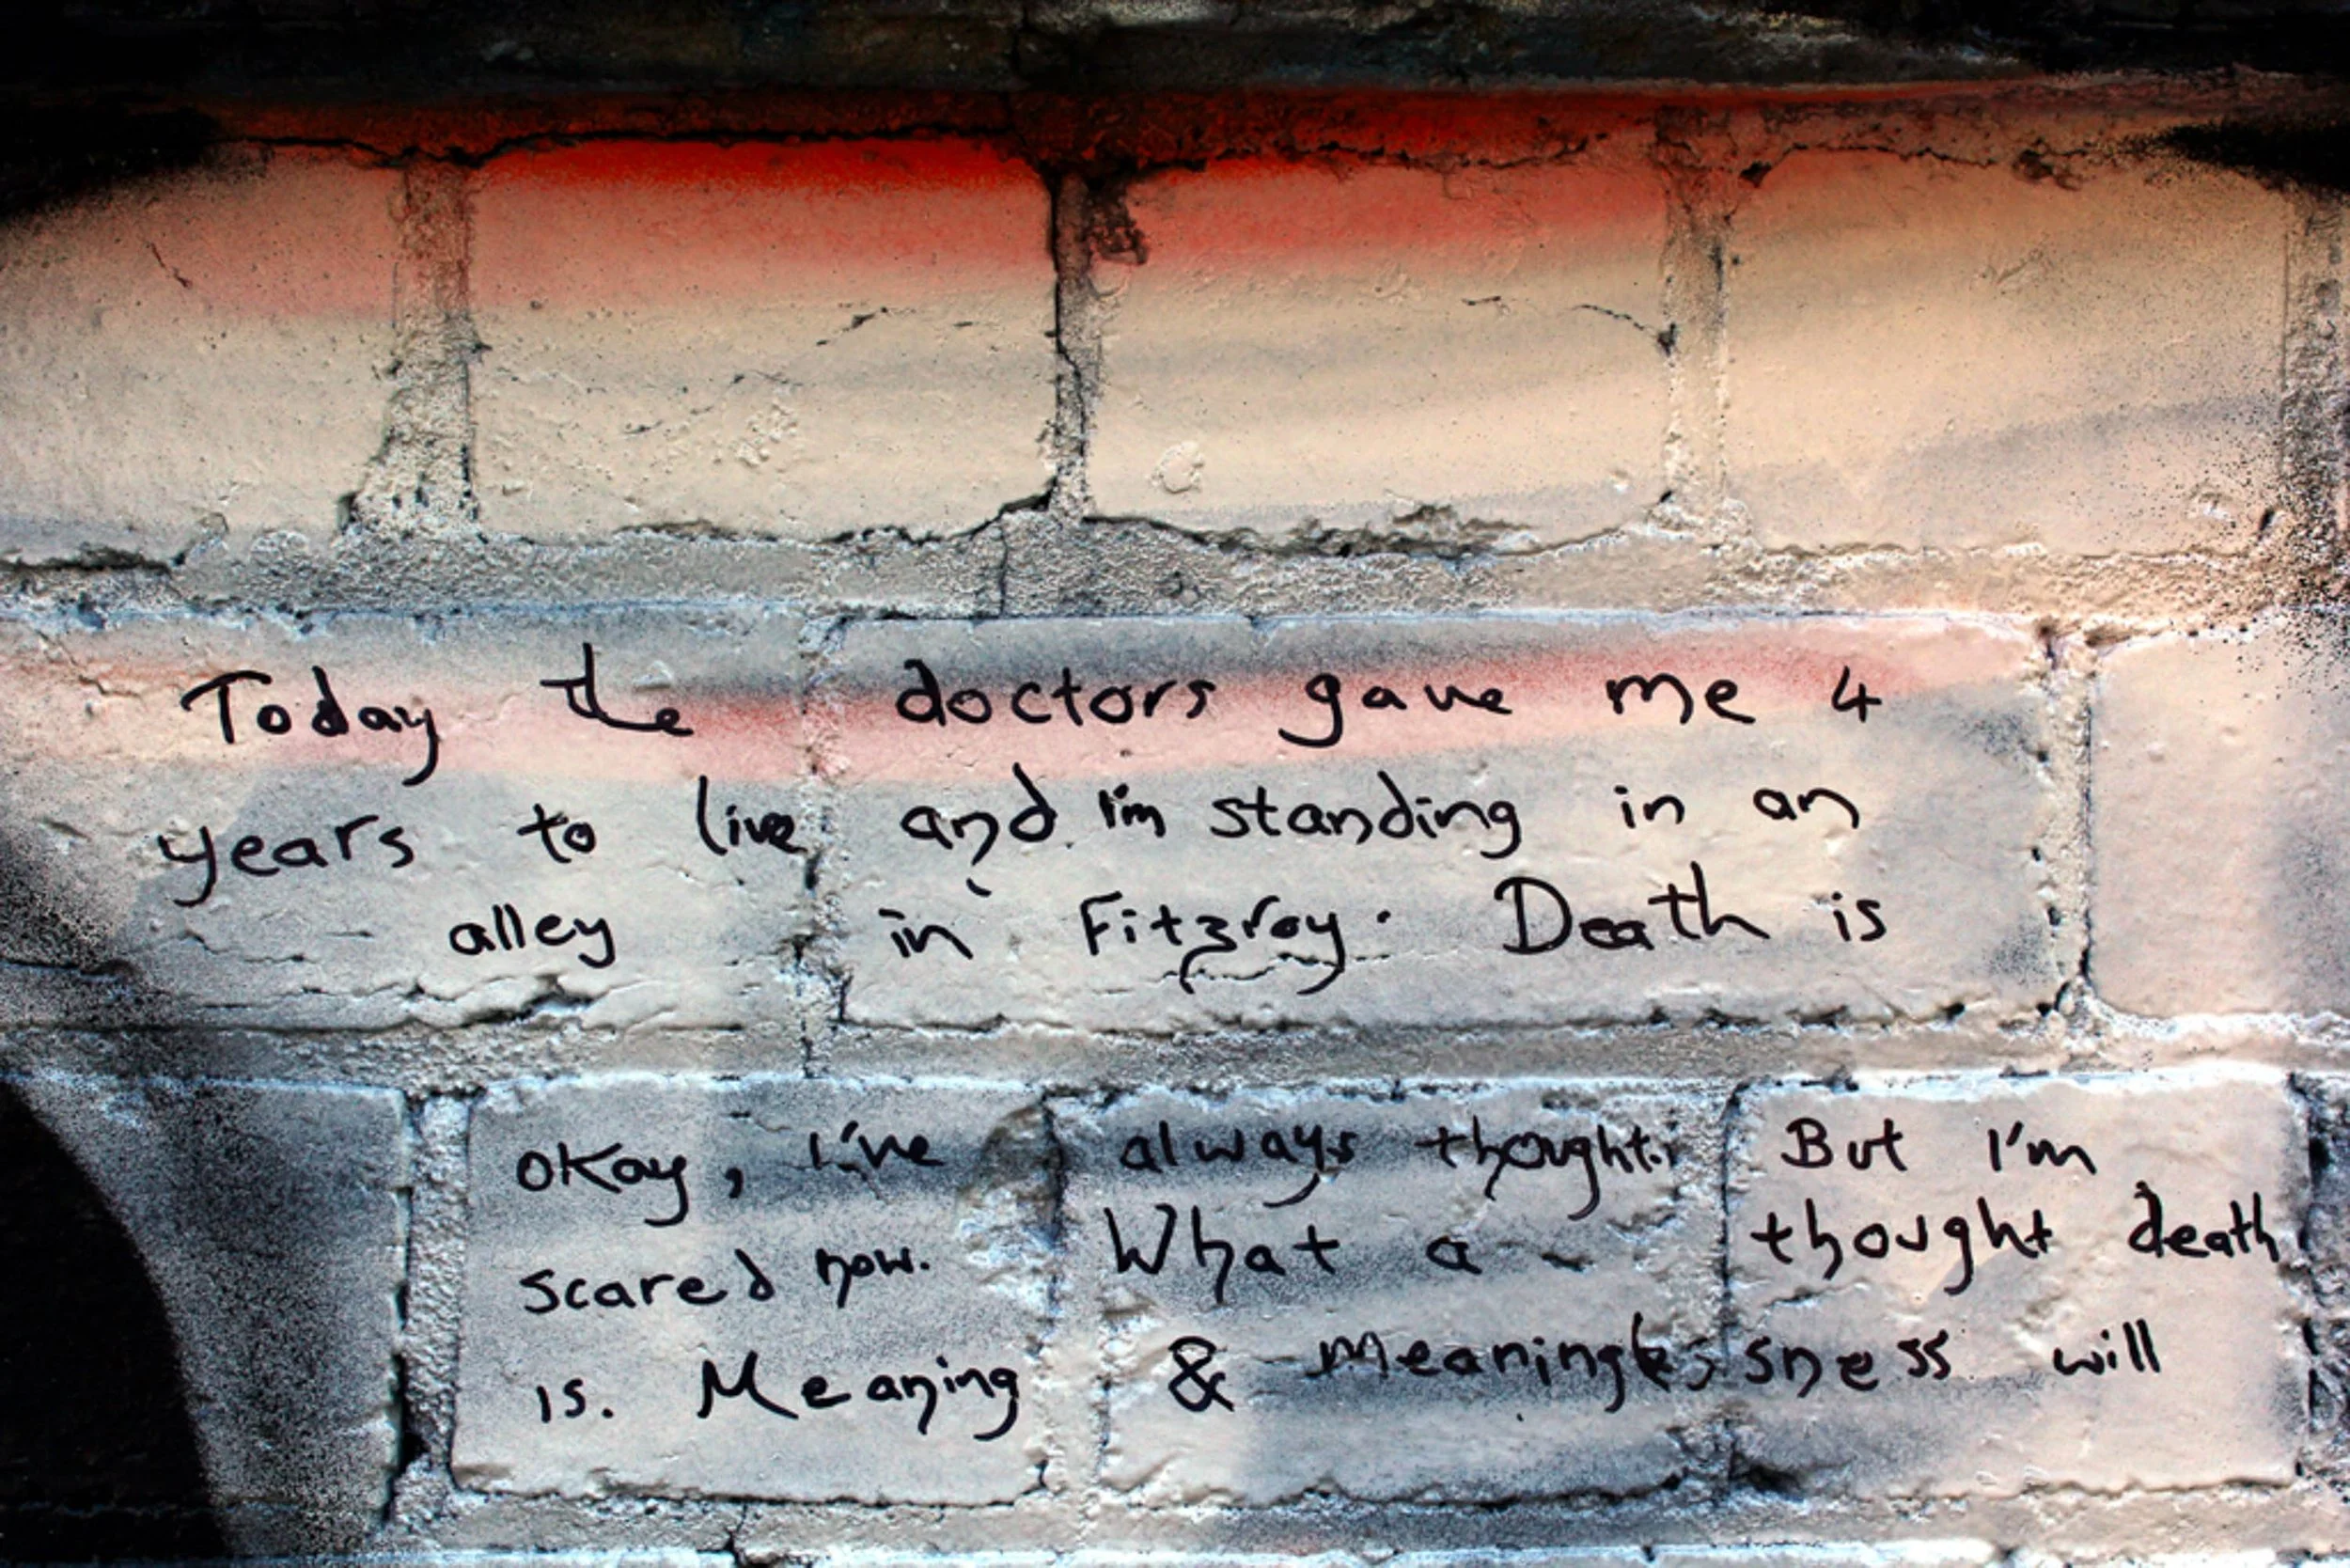 Today the doctors gave me 4
years to live and I'm standing in an
alley in Fitzroy. Death is
okay, I've always thought. But I'm
scared now. What a thought death
is. Meaning & meaninglessness will